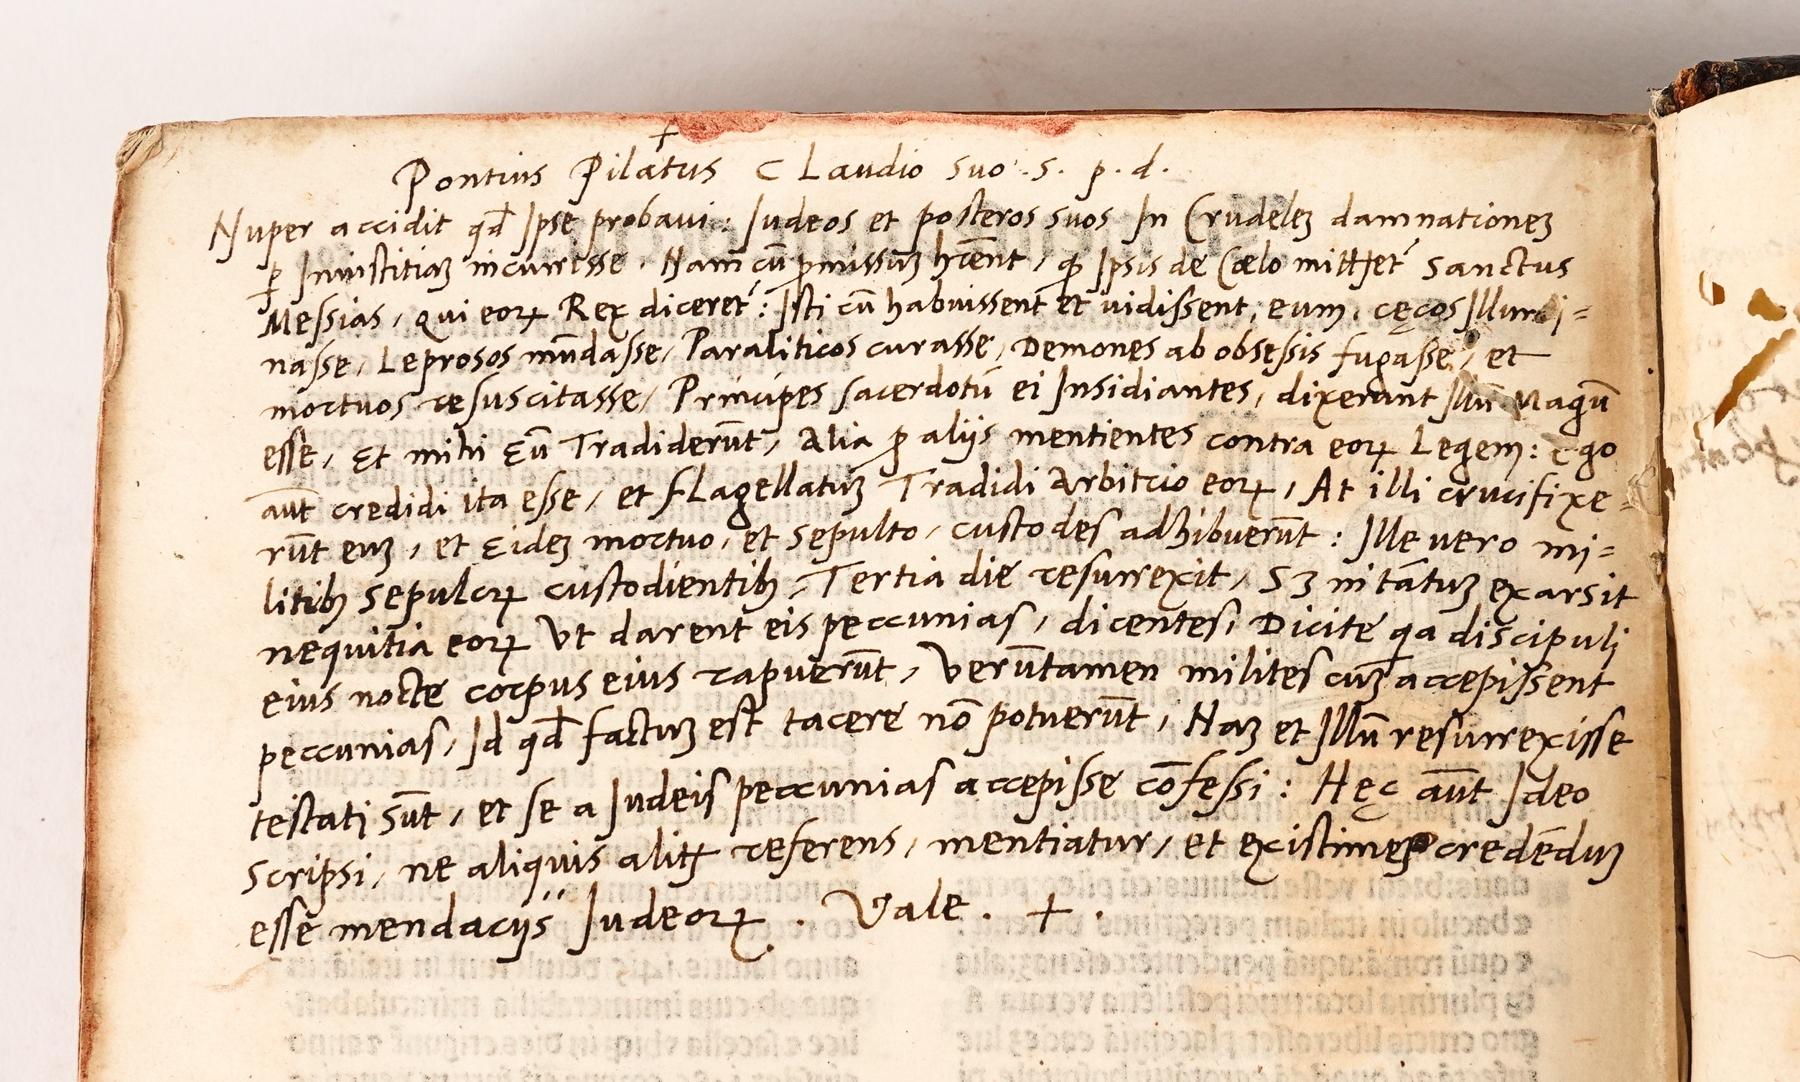 +
Pontius Pilatus CLaudio suo .s. p. d.
Nuper accidit qđ Ipse probavi: Iudeos et posteros suos In Crudeleʒ damnationeʒ
ꝑ Iniustitiaʒ incurrisse. Nam cũ ꝓmissuʒ hr̃ent, qꝫ Ipsis de Cœlo mittet᷑ Sanctus
Messias, qui eoꝝ Rex diceret᷑: Isti cũ habuissent et vidissent, eum, cęcos Illumi=
nasse, Leprosos mũdasse, Paraliticos curasse, Demones ab obsessis fugasse, et
mortuos resuscitasse, Principes sacerdotũ ei Insidiantes, dixerant Illũ Magũ
esse, Et mihi Eũ Tradiderũt, Alia ꝓ aliis mentientes contra eoꝝ Legem: Ego
aũt credidi ita esse, et fLagellatuʒ Tradidi Arbitrio eoꝝ, At illi crucifixe=
rũt euʒ, et Eideʒ mortuo, et sepulto, custodes adhibuerũt: Ille vero mi=
litibꝫ sepulcrꝝ custodientibꝫ, Tertia die resurrexit, Sʒ in tãtuʒ exarsit
nequitia eoꝝ Vt darent eis peccunias, dicentes, Dicite qa discipuli
eius nocte corpus eius rapuerũt, Verũtamen milites cuʒ accepissent
peccunias, Id qđ factuʒ est tacere nõ potuerũt, Naʒ et Illũ resurrexisse
testati sũt, et se a Iudeis peccunias accepisse cõfessi: Hęc aũt Ideo
scripsi, ne aliquis alitꝭ referens, mentiatur, et existimes credẽduʒ
esse mendaciis Iudeoꝝ. Vale. +.